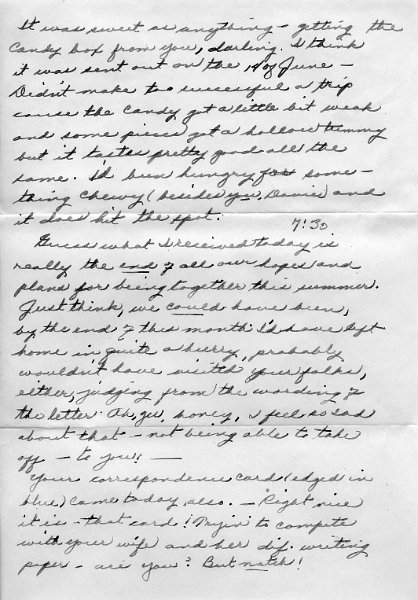 It was sweet as anything - getting the
candy box from you, darling. I think
it was sent out on the 14 of June -
Didn't make too successful a trip
cause the candy got a little bit weak
and some pieces got a hollow tummy
but it tastes pretty good all the
same. I'd been hungry for some-
thing chewy (besides you, Dannie) and
it does hit the spot.
7:30
Guess what I received today is
really the end of all our hopes and
plans for being together this summer.
Just think, we could have been,
by the end of this month. I'd have left
home in quite a hurry, probably
wouldn't have visited your folks,
either, judging from the wording of
the letter. Oh, gee, honey, I feel so sad
about that - not being able to take
off - to you! -
Your correspondence card (edged in
blue) came today, also. - Right nice
it is - that card! Tryin' to compete
with your wife and her dif. writing
paper - are you? But natch!